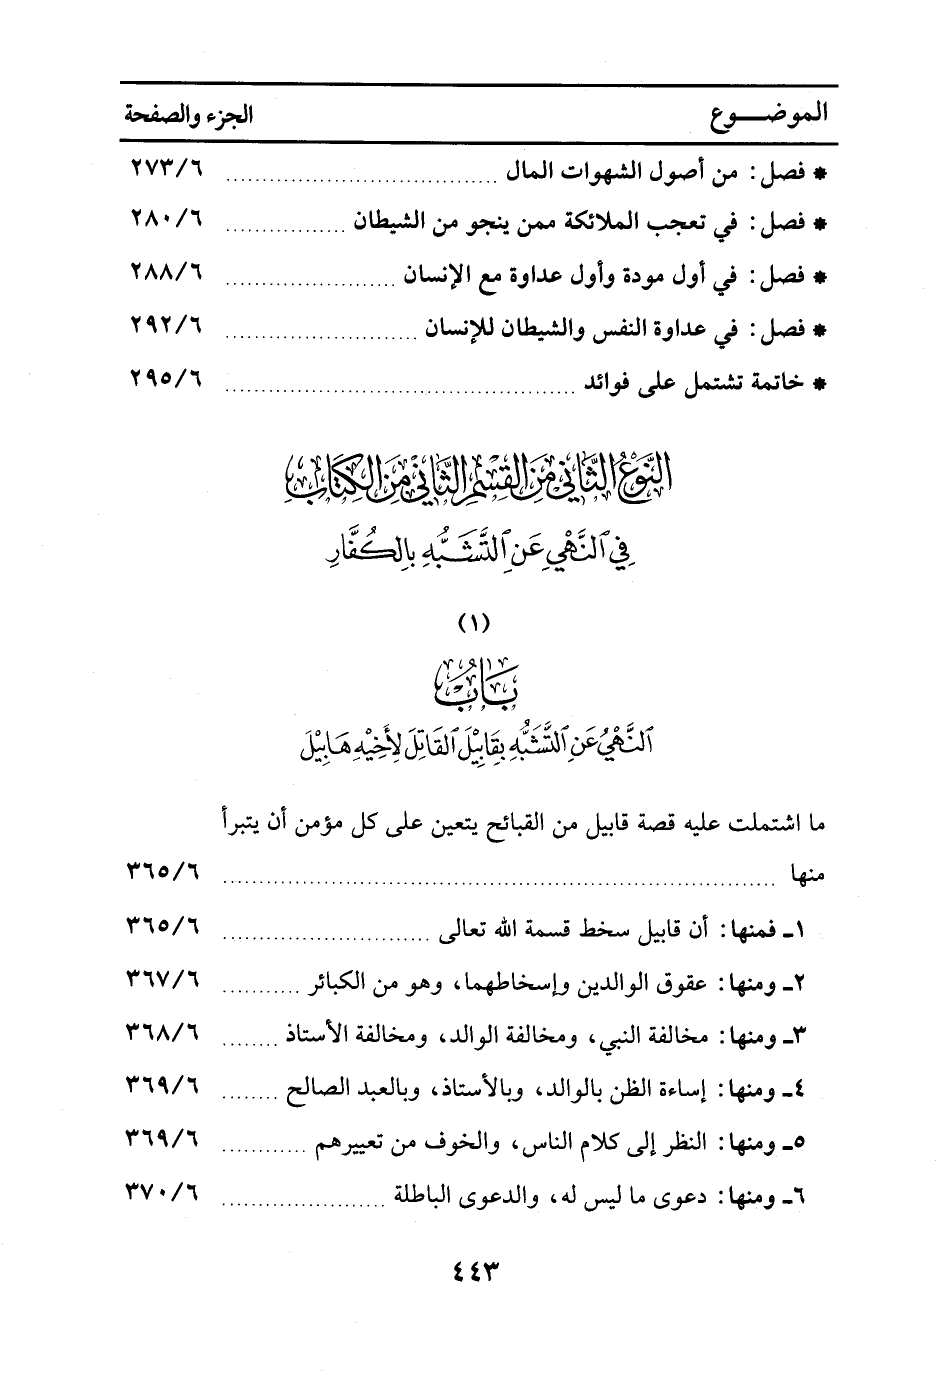 الموضـــوع الجزء والصفحة
* فصل: من أصول الشهوات المال ................ ٢٧٣/٦
* فصل: في تعجب الملائكة ممن ينجو من الشيطان ................ ٢٨٠/٦
* فصل: في أول مودة وأول عداوة مع الإنسان ................ ٢٨٨/٦
* فصل: في عداوة النفس والشيطان للإنسان ................ ٢٩٢/٦
* خاتمة تشتمل على فوائد ................ ٢٩٥/٦
النَّوْعُ الثَّانِي مِنَ القِسْمِ الثَّانِي مِنَ الكِتَابِ
فِي النَّهْيِ عَنِ التَّشَبُّهِ بِالكُفَّارِ
(١)
بَابُ
النَّهْيُ عَنِ التَّشَبُّهِ بِقَابِيْلَ القَاتِلِ لِأَخِيْهِ هَابِيْلَ
ما اشتملت عليه قصة قابيل من القبائح يتعين على كل مؤمن أن يتبرأ
منها ................ ٣٦٥/٦
١ـ فمنها: أن قابيل سخط قسمة الله تعالى ................ ٣٦٥/٦
٢ـ ومنها: عقوق الوالدين وإسخاطهما، وهو من الكبائر ........... ٣٦٧/٦
٣ـ ومنها: مخالفة النبي، ومخالفة الوالد، ومخالفة الأستاذ ........ ٣٦٨/٦
٤ـ ومنها: إساءة الظن بالوالد، وبالأستاذ، وبالعبد الصالح ........ ٣٦٩/٦
٥ـ ومنها: النظر إلى كلام الناس، والخوف من تعييرهم ............ ٣٦٩/٦
٦ـ ومنها: دعوى ما ليس له، والدعوى الباطلة ................ ٣٧٠/٦
٤٤٣